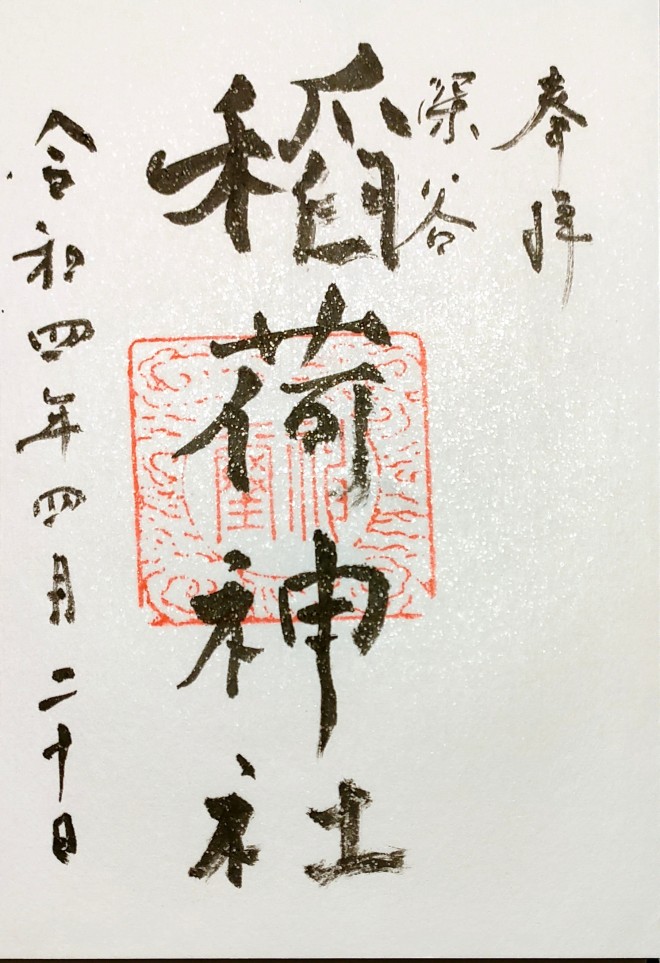 奉拝
深谷
稲荷神社
令和四年四月二十日